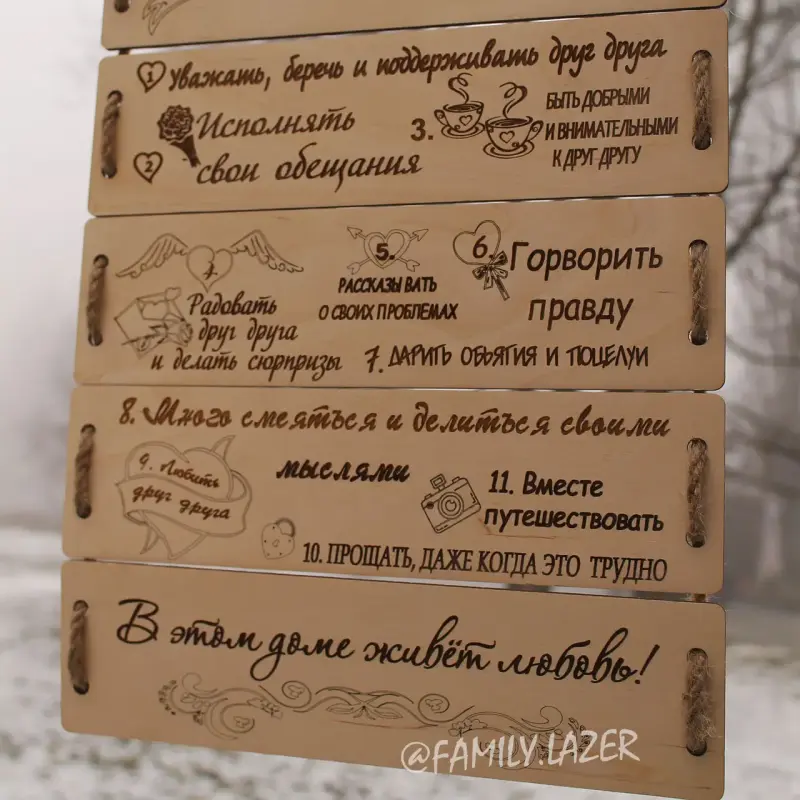 1 Уважать, беречь и поддерживать друг друга
2 Исполнять
свои обещания
3.
БЫТЬ ДОБРЫМИ
И ВНИМАТЕЛЬНЫМИ
К ДРУГ ДРУГУ
4.
Радовать
друг друга
и делать сюрпризы
5.
РАССКАЗЫ ВАТЬ
О СВОИХ ПРОБЛЕМАХ
6.
Горворить
правду
7. ДАРИТЬ ОБЪЯТИЯ И ПОЦЕЛУИ
8. Много смеяться и делиться своими
мыслями
9. Любить
друг друга
11. Вместе
путешествовать
10. ПРОЩАТЬ, ДАЖЕ КОГДА ЭТО ТРУДНО
В этом доме живёт любовь!
@FAMILY.LAZER